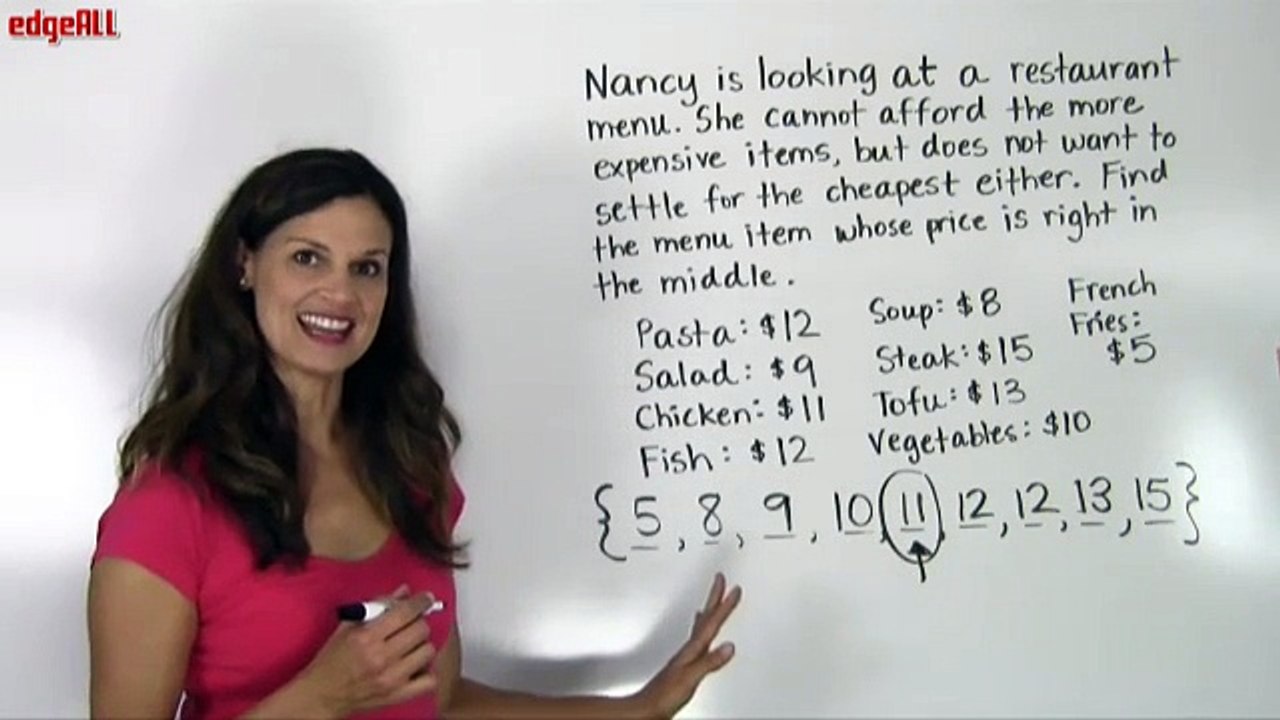 edgeALL
Nancy is looking at a restaurant
menu. She cannot afford the more
expensive items, but does not want to
settle for the cheapest either. Find
the menu item whose price is right in
the middle.
Pasta: $12
Salad: $9
Chicken: $11
Fish: $12
Soup: $8
Steak: $15
Tofu: $13
Vegetables: $10
French
Fries:
$5
{5, 8, 9, 10, 11, 12, 12, 13, 15}